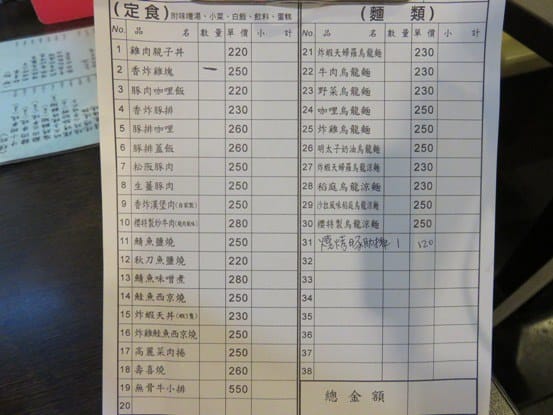 (定食) 附味噌湯、小菜、白飯、飲料、蛋糕
No. 品名 數量 單價 小計
1 雞肉親子丼 220
2 香炸雞塊 一 230
3 豚肉咖哩飯 220
4 香炸豚排 250
5 豚排咖哩 260
6 豚排蓋飯 260
7 松阪豚肉 250
8 生薑豚肉 250
9 香炸漢堡肉(自家製) 250
10 櫻特製炒牛肉 280
11 鯖魚鹽燒 250
12 秋刀魚鹽燒 220
13 鯖魚味噌煮 280
14 鮭魚西京燒 250
15 炸蝦天丼(蝦3隻) 230
16 炸雞鮭魚西京燒 250
17 高麗菜肉捲 250
18 壽喜燒 260
19 無骨牛小排 550
20
(麵類)
No. 品名 數量 單價 小計
21 炸蝦天婦羅烏龍麵 230
22 牛肉烏龍麵 230
23 野菜烏龍麵 230
24 咖哩烏龍麵 250
25 炸雞烏龍麵 250
26 明太子奶油烏龍麵 250
27 炸蝦天婦羅烏龍涼麵 230
28 稻庭烏龍涼麵 230
29 沙拉風味稻庭烏龍麵 250
30 櫻特製烏龍涼麵 250
31 燒烤豚肋排 1 120
32
33
34
35
36
37
38
總金額